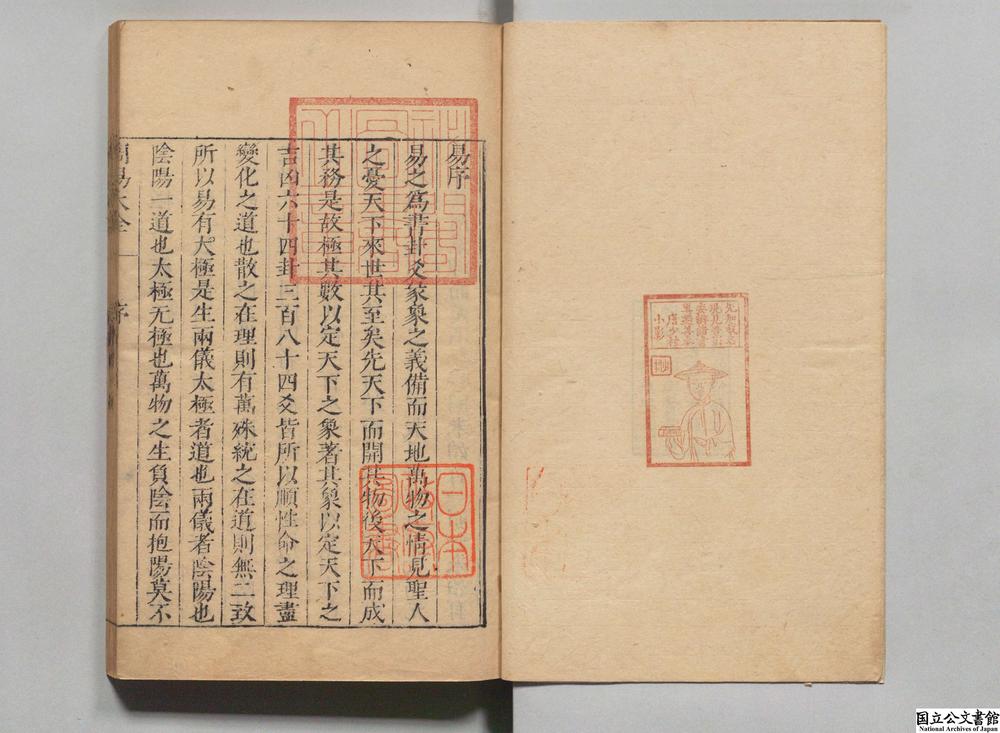 易序
易之爲書卦爻彖象之義備而天地萬物之情見聖人
之憂天下來世其至矣先天下而開其物後天下而成
其務是故極其數以定天下之象著其象以定天下之
吉凶六十四卦三百八十四爻皆所以順性命之理盡
變化之道也散之在理則有萬殊統之在道則無二致
所以易有太極是生兩儀太極者道也兩儀者陰陽也
陰陽一道也太極无極也萬物之生負陰而抱陽莫不
周易大全 序
日本
小影
国立公文書館
National Archives of Japan